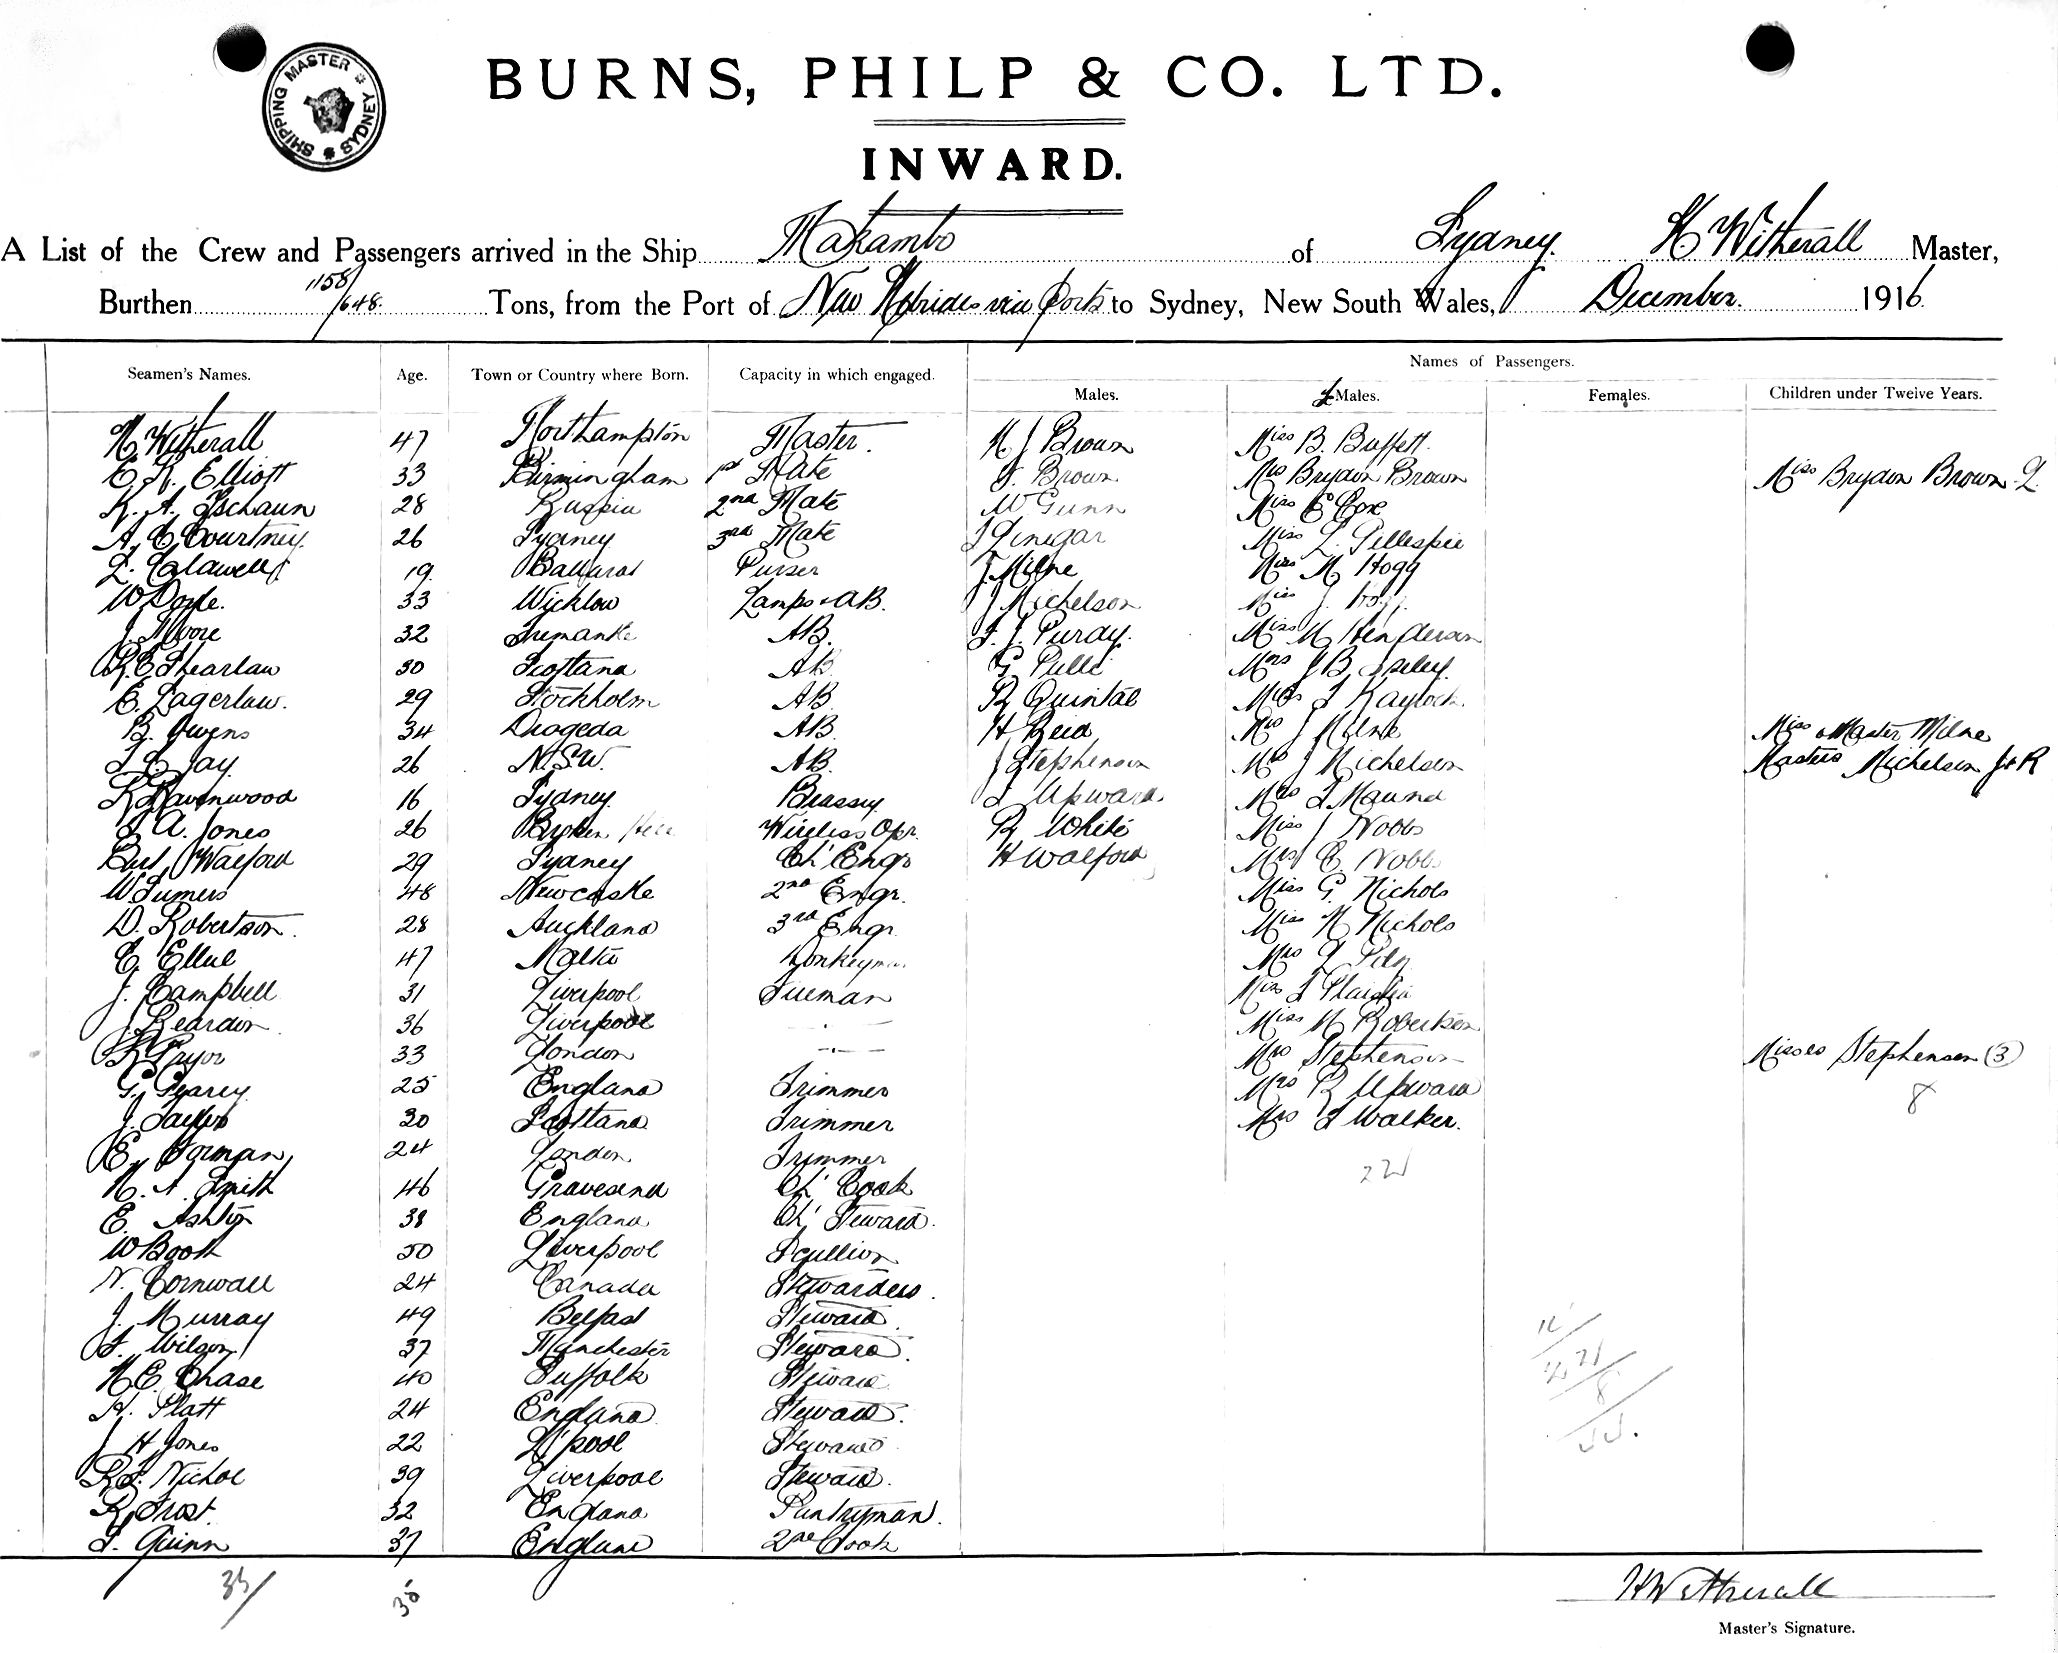 SHIPPING MASTER SYDNEY
BURNS, PHILP & CO. LTD.
INWARD.
A List of the Crew and Passengers arrived in the Ship Makambo of Sydney. H Witherall Master,
Burthen 1158/648. Tons, from the Port of New Hebrides via Ports to Sydney, New South Wales, December. 1916.
Names of Passengers.
Seamen's Names. Age. Town or Country where Born. Capacity in which engaged. Males. Males. Females. Children under Twelve Years.
H. Witherall 47 Northampton Master. H J Brown Miss B. Buffett.
E. R. Elliott 33 Birmingham 1st Mate Brown Mrs Brydon Brown Miss Brydon Brown. 2.
K. A. Tschaun 28 Russia 2nd Mate W Gunn Miss E Coxe
A. C Courtney. 26 Sydney 3rd Mate Miss L. Gillespie
L. 19 Ballarat Purser J. Milne Miss M Hogg
W Doyle. 33 Wicklow Lamps & AB. J Michelson Miss J.
J. Moore 32 AB. F. J. Purdy. Miss M Henderson
R. E Shearlaw 30 Scotland AB G Mrs J B
E. Lagerlaw. 29 Stockholm AB R Quintal T Kaylock.
B. Owens 34 Drogeda AB. H Reid Mrs J Milne Miss & Master Milne
Jay. 26 N.S.W. AB. J Stephenson Mrs J Michelson Masters Michelson J & R
R Ravenwood 16 Sydney. Brassey. Upward. Mrs T Maund
A. Jones 26 Broken Hill Wireless Opr. R White Miss J Nobbs
Walford 29 Sydney Ch' Engr H Walford Mrs E Nobbs
W Sumers 48 Newcastle 2nd Engr. Miss G. Nichols
D. Robertson. 28 Auckland 3rd Engr Miss M Nichols
E Ellul 47 Malta Donkeyman Mrs
J. Campbell 31 Liverpool Fireman
J. Reardon 36 Liverpool - . - Miss M Robertson
R Pryor 33 London - . - Mrs Stephenson Misses Stephenson (3)
G. Pearey. 25 England Trimmer Mrs R Upward 8
J. Taylor 30 Scotland Trimmer Mrs Walker.
E. Gorman, 24 London Trimmer 22
H. A. Smith 46 Gravesend Ch' Cook
E. Ashton 38 England Ch' Steward.
W Booth 50 Liverpool Scullion
N. Cornwall 24 Canada Stewardess.
J. Murray 49 Belfast Steward.
F. Wilson 37 Manchester Steward.
H E Chase 40 Suffolk Steward
H. Platt 24 England Steward.
J H Jones 22 L'pool Steward
Nichol 39 Liverpool Steward.
R Frost. 32 England Pantryman.
Quinn 37 England 2nd Cook
35 35
H Witherall
Master's Signature.